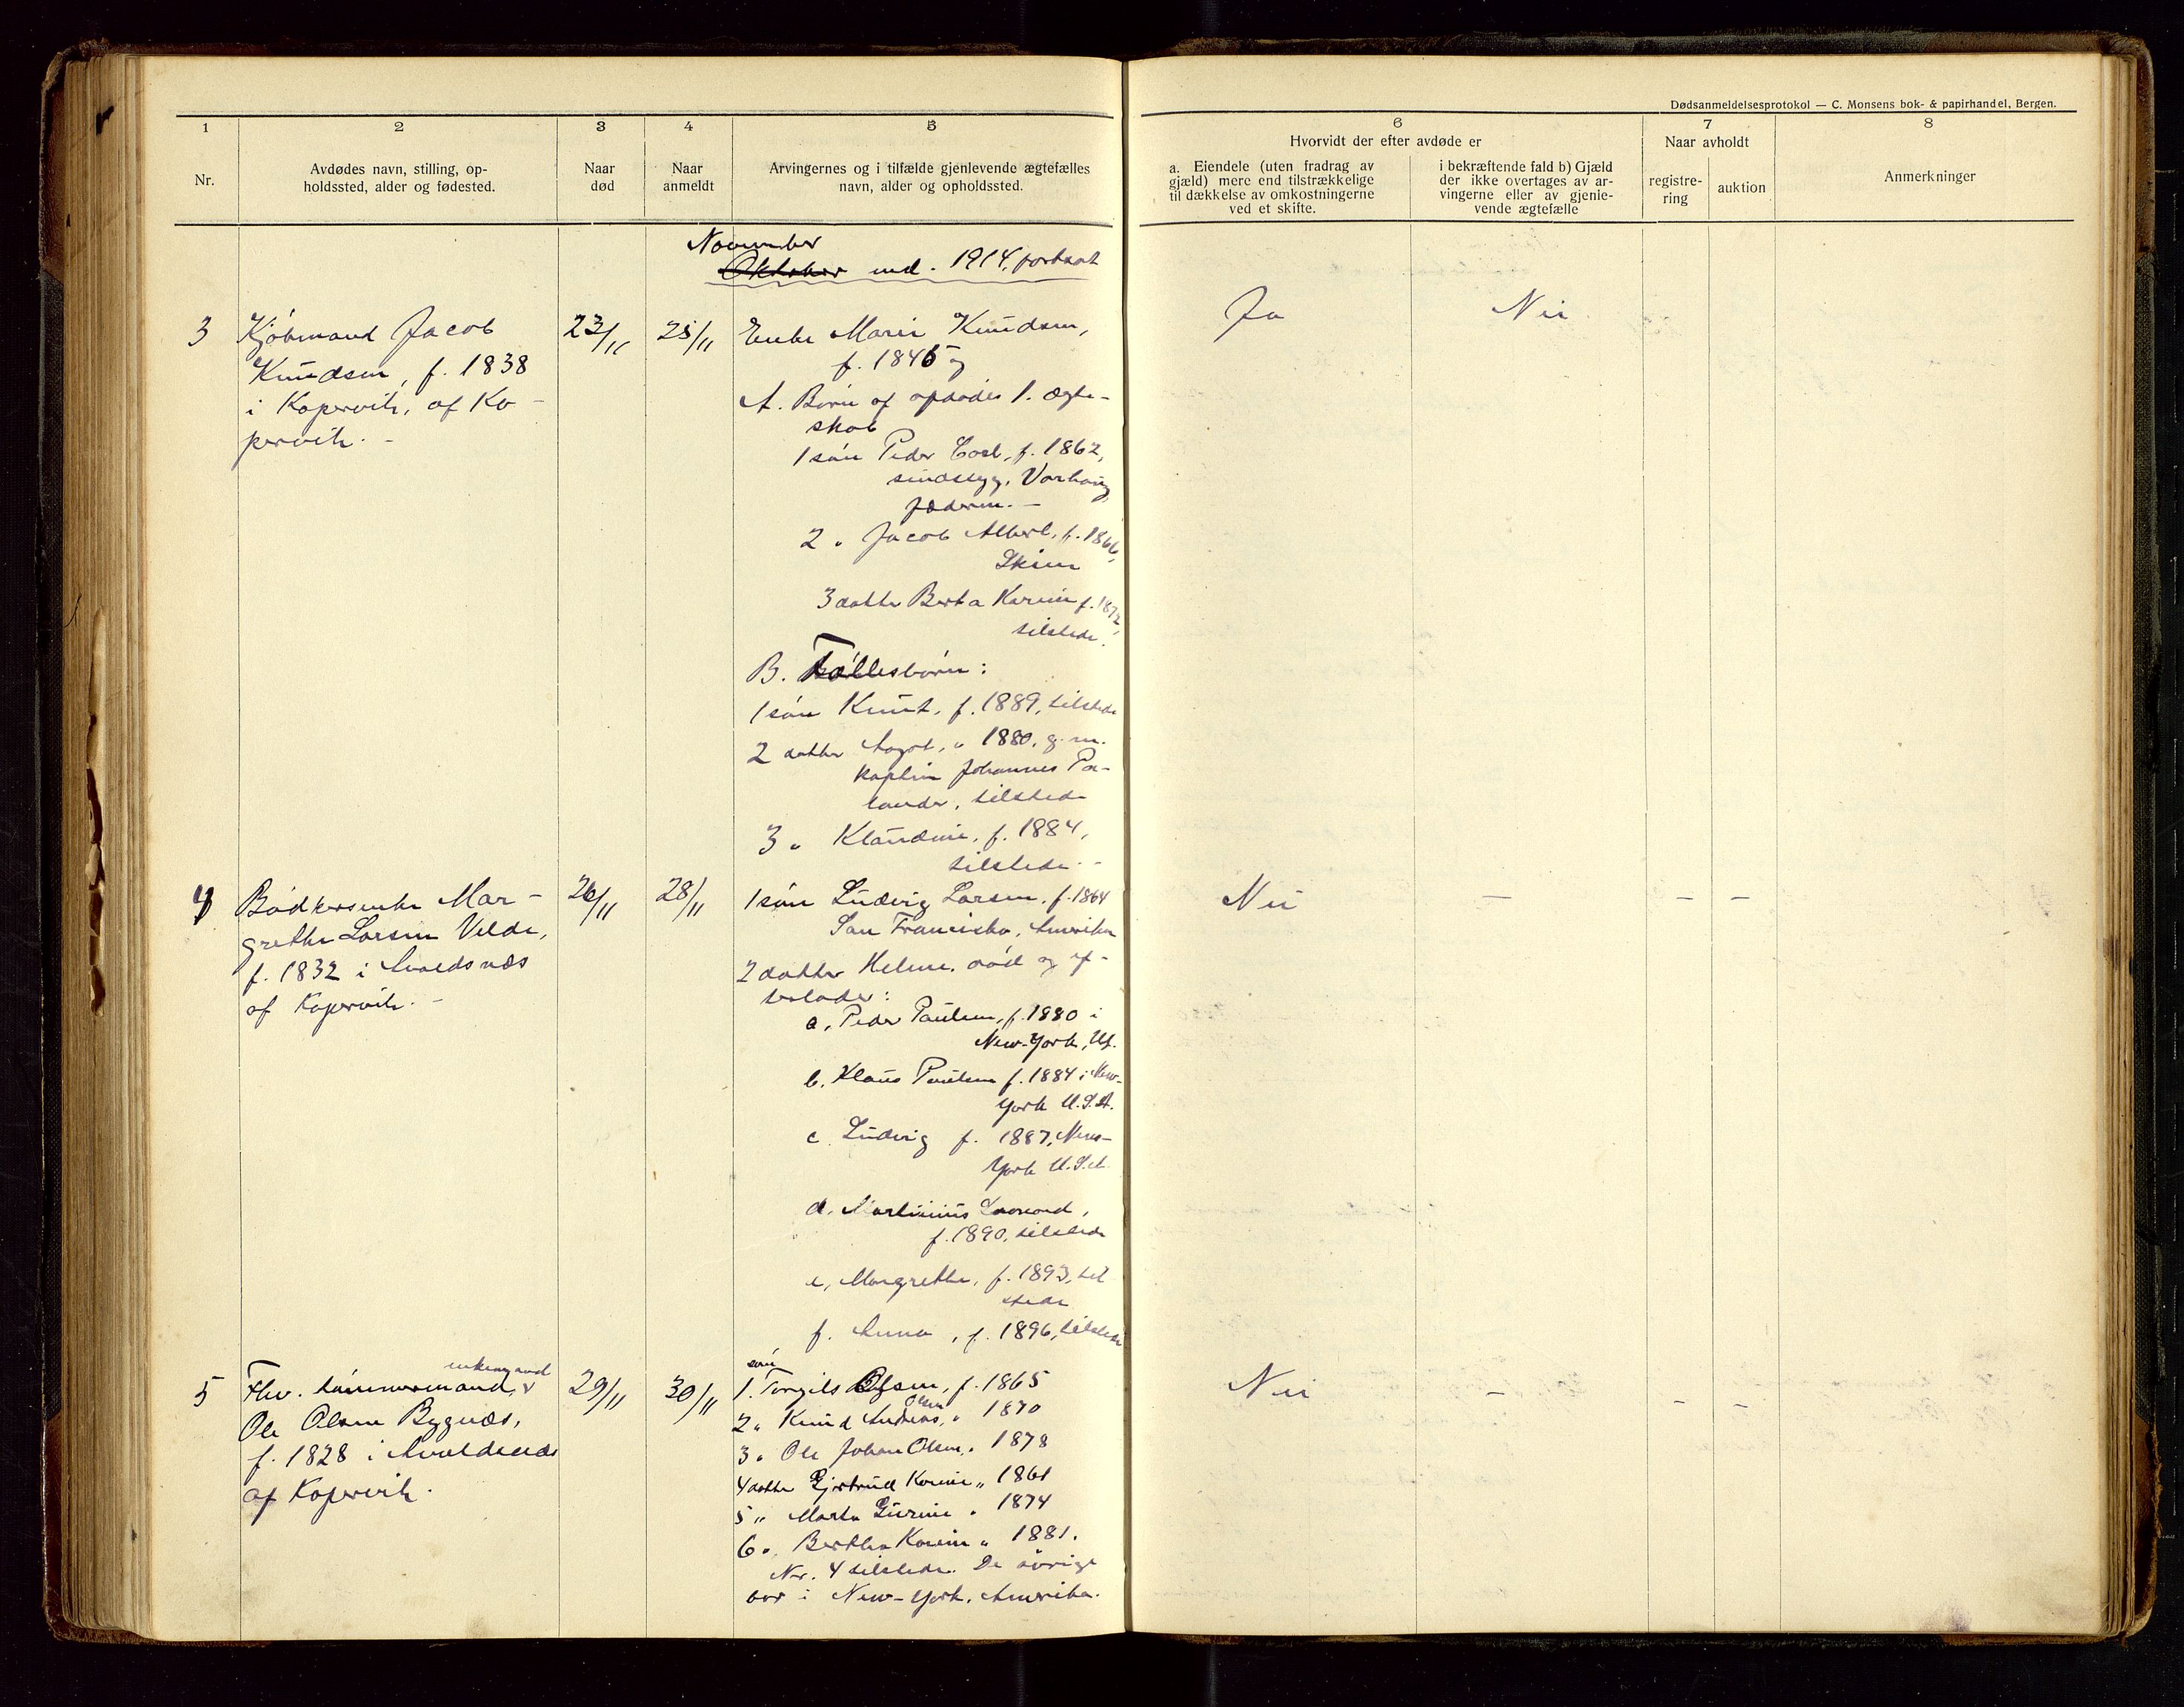 Dødsanmeldelsesprotokol — C. Monsens bok- & papirhandel, Bergen.
1 2 3 4 5 6 7 8
Nr.
Avdødes navn, stilling, op-
holdssted, alder og fødested.
Naar
død
Naar
anmeldt
Arvingernes og i tilfælde gjenlevende ægtefælles
navn, alder og opholdssted.
Hvorvidt der efter avdøde er
a. Eiendele (uten fradrag av
gjæld) mere end tilstrækkelige
til dækkelse av omkostningerne
ved et skifte.
i bekræftende fald b) Gjæld
der ikke overtages av ar-
vingerne eller av gjenle-
vende ægtefælle
Naar avholdt
registre-
ring
auktion
Anmerkninger
November
Oktober md. 1914, fortsat
3
Kjöbmand Jacob
Knudsen, f. 1838
i Kopervik, af Ko-
pervik. -
23/11
25/11
Enke Marie Knudsen,
f. 1845 og
A. Börn af afdödes 1. ægte-
skab
1 sön Peder Carl, f. 1862,
sindssyg, Varhaug,
Jæderen. -
2 " Jacob Albert, f. 1866,
Skien
3 datter Berta Karine f. 1872,
tilstede.
B. Fællesbörn:
1 sön Knut, f. 1889, tilstede
2 datter Aagot, " 1880, g. m.
kaptein Johannes Pa-
lander, tilstede
3 " Klaudine, f. 1884,
tilstede. -
Ja
Nei
4
Bödkerenke Mar-
grethe Larsen Velde,
f. 1832 i Avaldsnæs
af Kopervik. -
26/11
28/11
1 sön Ludvig Larsen, f. 1864
San Francisko, Amerika
2 datter Helene, död og ef-
terlader:
a. Peder Paulsen, f. 1880 i
New-York, Us.
b. Klaus Paulsen f. 1884 i New-
York U.S.A.
c. Ludvig f. 1887, New-
York U.S.A.
d. Martinius Leonard,
f. 1890, tilstede
e, Margrethe, f. 1893, til-
stede
f. Anna, f. 1896, tilstede
Nei
—
–
–
5
enkemand
Fhv. tömmermand, &
Ole Olsen Bygnæs,
f. 1828 i Avaldsnæs
af Kopervik.
29/11
30/11
sön
1. Torgils Olsen, f. 1865
2 " Knud Andreas Olsen, " 1870
3 " Ole Johan Olsen, " 1878
4 datter Gjertrud Karine " 1861
5 " Marta Gurine " 1874
6 " Bertha Karine " 1881.
Nr. 4 tilstede. De övrige
bor i New-York, Amerika.
Nei
–
–
–